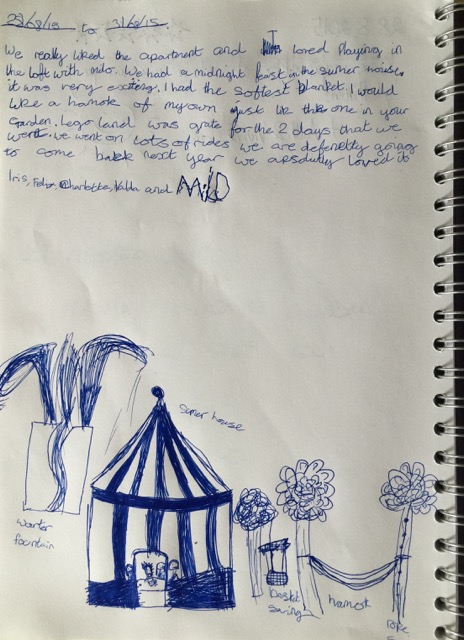 28/08/15 to 31/08/15
We really liked the apartment and I loved Playing in
the loft with milo. We had a midnight feast in the sumer house,
it was very exciting. I had the softest blanket. I would
like a hamok of my own just lik the one in your
Garden. Lego land was grate for the 2 days that we
went. we went on lots of rides we are defenetly going
to come back next year we absolutly loved it
Iris, Felix, Charlotte, and MilO
sumer house
warter
fountain
basket
swing
hamok